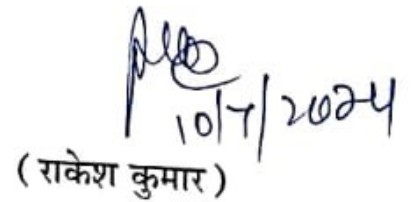 10/7/2024
( राकेश कुमार )